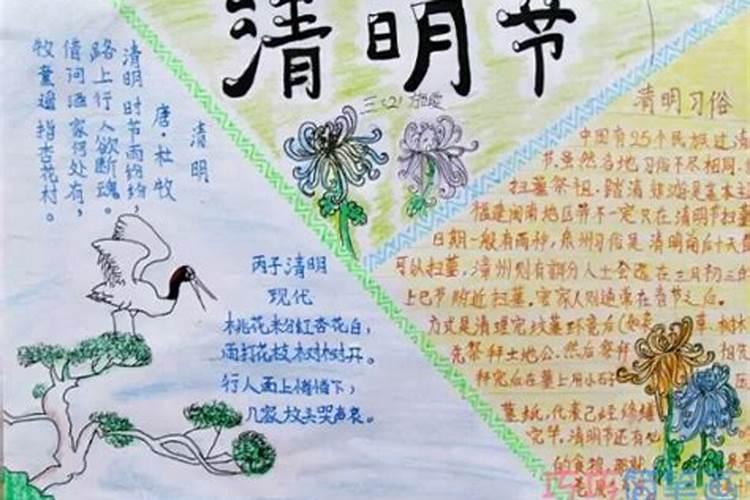 清明节
三(2)
清明
唐·杜牧
清明时节雨纷纷，
路上行人欲断魂。
借问酒家何处有，
牧童遥指杏花村。
丙子清明
现代
桃花粉红杏花白，
雨打花枝树树开。
行人面上惜惜下，
几家坟头哭声哀。
清明习俗
中国有25个民族过清
节，虽然各地习俗不尽相同，
扫墓祭祖、踏清郊游是基本主
福建闽南地区并不一定只在清明节扫墓
日期一般有两种，泉州习俗是清明前后十天
可以扫墓，漳州则有部分人士会选在三月初三的
上巳节附近扫墓。客家人则通常在春节之后。
方式是清理完坟墓环境后
草、树材
先祭拜土地公，然后祭拜
相
拜完后在墓上用小石子
压
墓纸，代表已经
完毕。清明节还有
的食